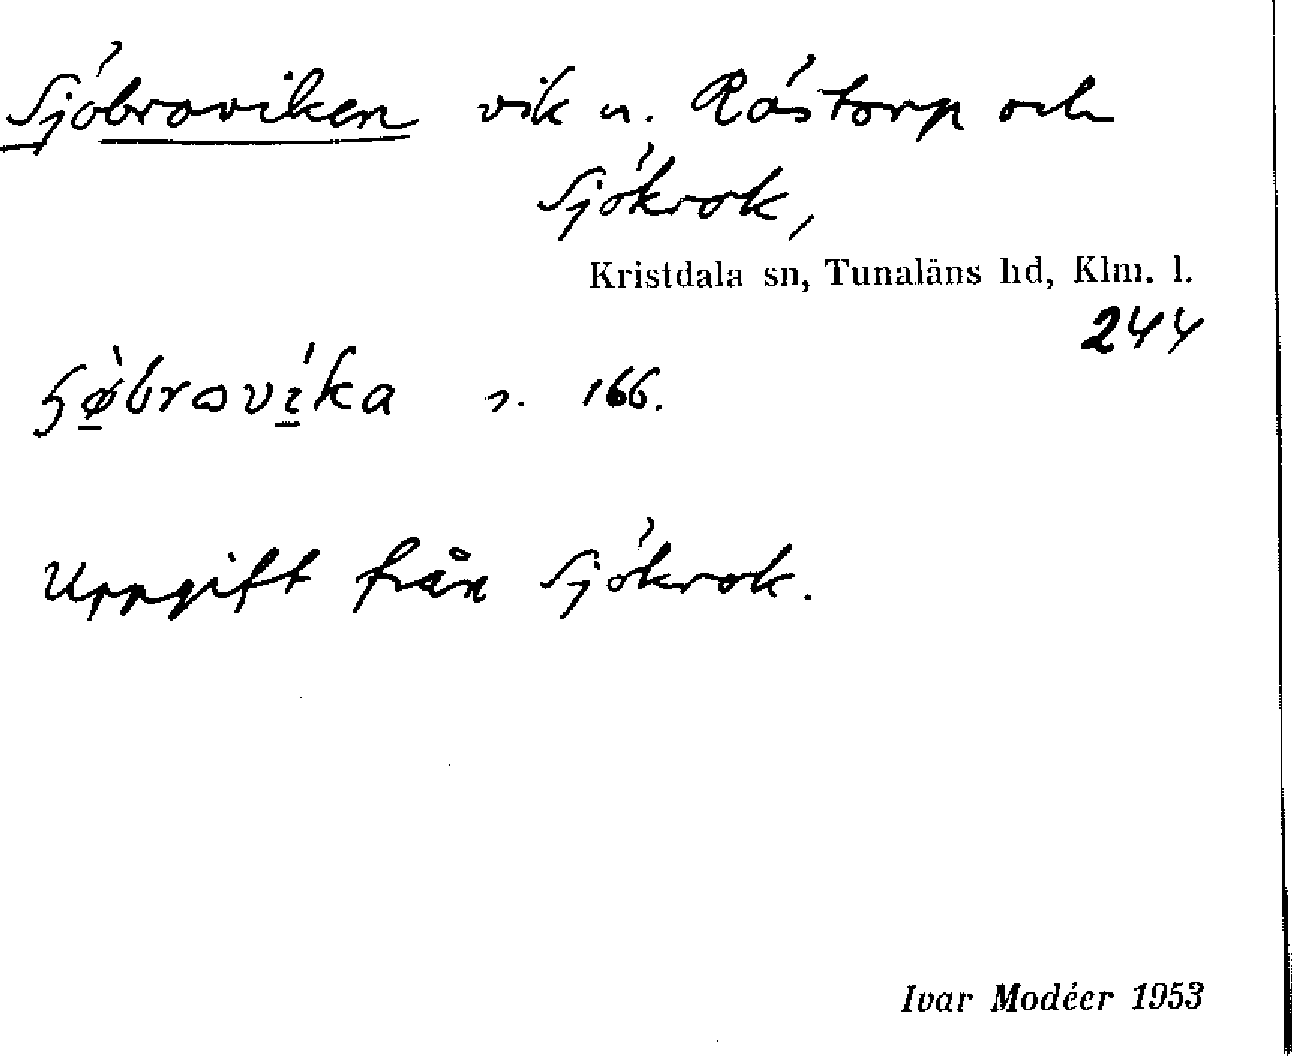 Sjöbroviken vik u. Röstorp och
Sjökrok,
Kristdala sn, Tunaläns hd, Klm. l.
244
166.
Uppgift från Sjökrok.
Ivar Modéer 1953